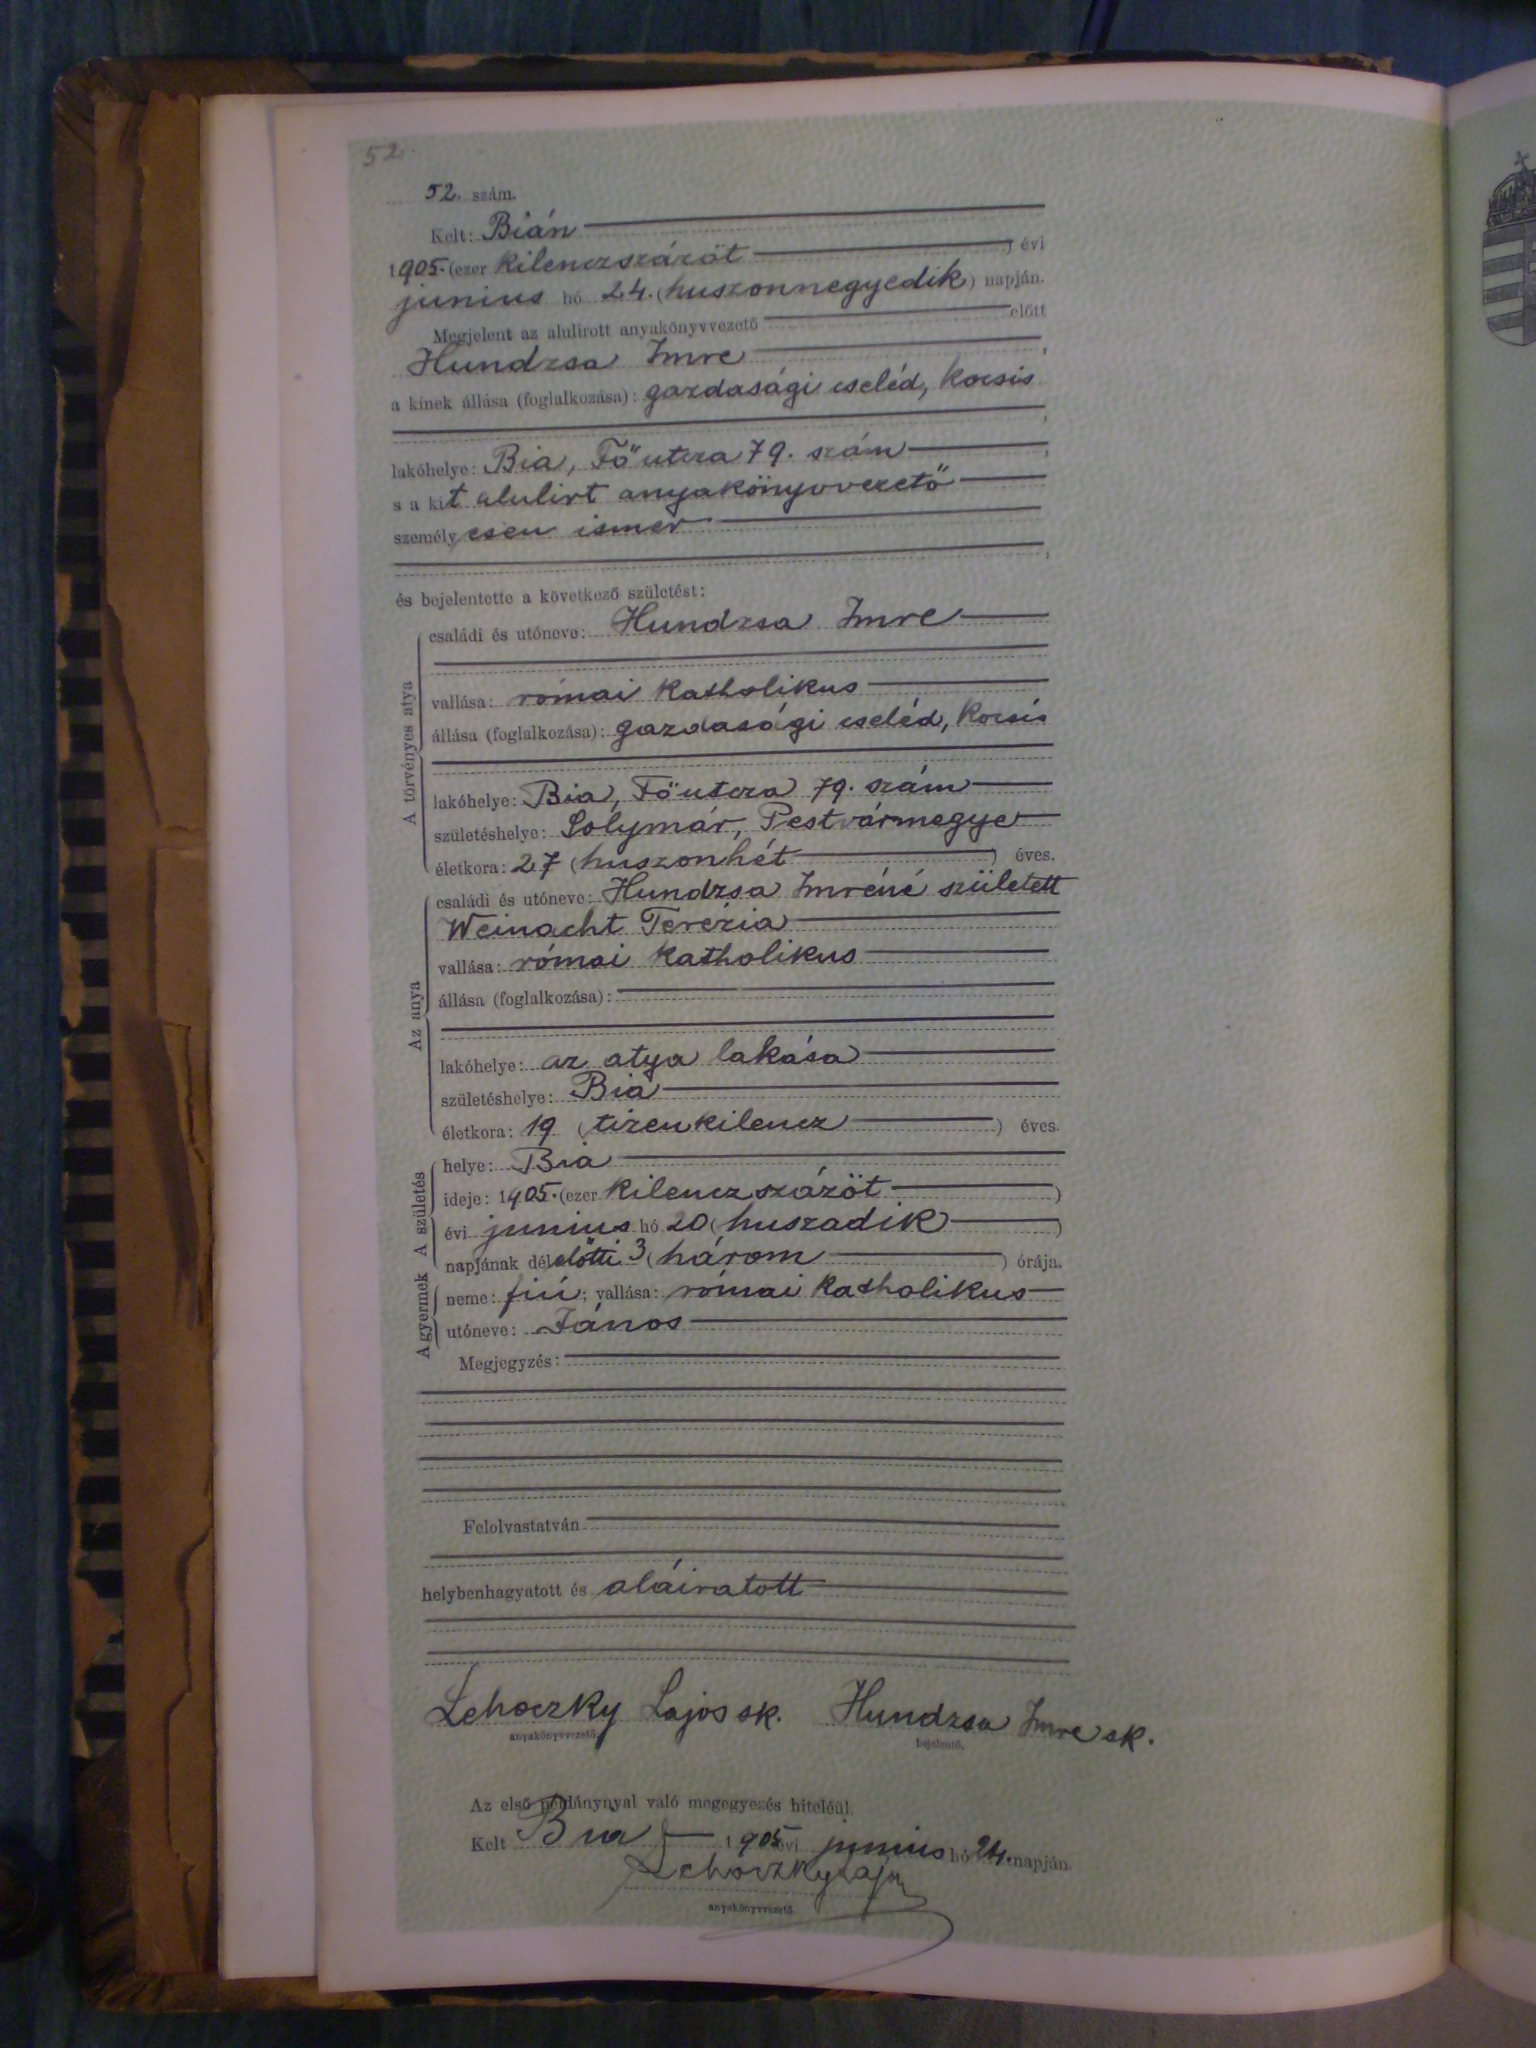 52.
52. szám.
Kelt: Bián
1905. (ezer kilenczszázöt) évi
junius hó 24. (huszonnegyedik) napján.
Megjelent az alulirott anyakönyvvezető előtt
Hundzsa Imre,
a kinek állása (foglalkozása): gazdasági cseléd, kocsis
,
lakóhelye: Bia, Főutcza 79. szám,
s a kit alulirt anyakönyvvezető
személyesen ismer
,
és bejelentette a következő születést:
A törvényes atya
családi és utóneve: Hundzsa Imre
vallása: római katholikus
állása (foglalkozása): gazdasági cseléd, kocsis
lakóhelye: Bia, Főutcza 79. szám
születéshelye: Solymár, Pestvármegye
életkora: 27 (huszonhét) éves.
Az anya
családi és utóneve: Hundzsa Imréné született
Weinacht Terézia
vallása: római katholikus
állása (foglalkozása):
lakóhelye: az atya lakása
születéshelye: Bia
életkora: 19 (tizenkilencz) éves.
A születés
helye: Bia
ideje: 1905. (ezer kilenczszázöt)
évi junius hó 20 (huszadik)
napjának délelőtti 3 (három) órája.
A gyermek
neme: fiú; vallása: római katholikus
utóneve: János
Megjegyzés:
Felolvastatván
helybenhagyatott és aláiratott
Lehoczky Lajos sk. Hundzsa Imre sk.
anyakönyvvezető. bejelentő.
Az első példánynyal való megegyezés hiteléül.
Kelt Bia 1905 évi junius hó 24. napján
Lehoczky Lajos
anyakönyvvezető.